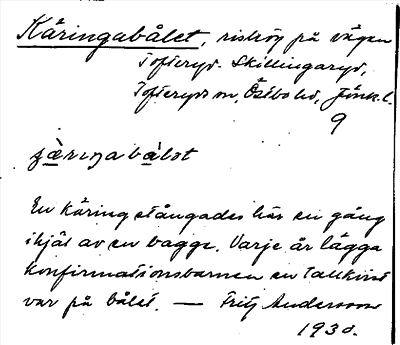 Käringabålet, rishög på vägen
Tofteryd - Skillingaryd,
Tofteryds sn, Östbo hd, Jönk. l.
9
En käring stångades här en gång
ihjäl av en bagge. Varje år lägga
konfirmationsbarnen en tallkvist
var på bålet. — Fritz Andersson
1930.